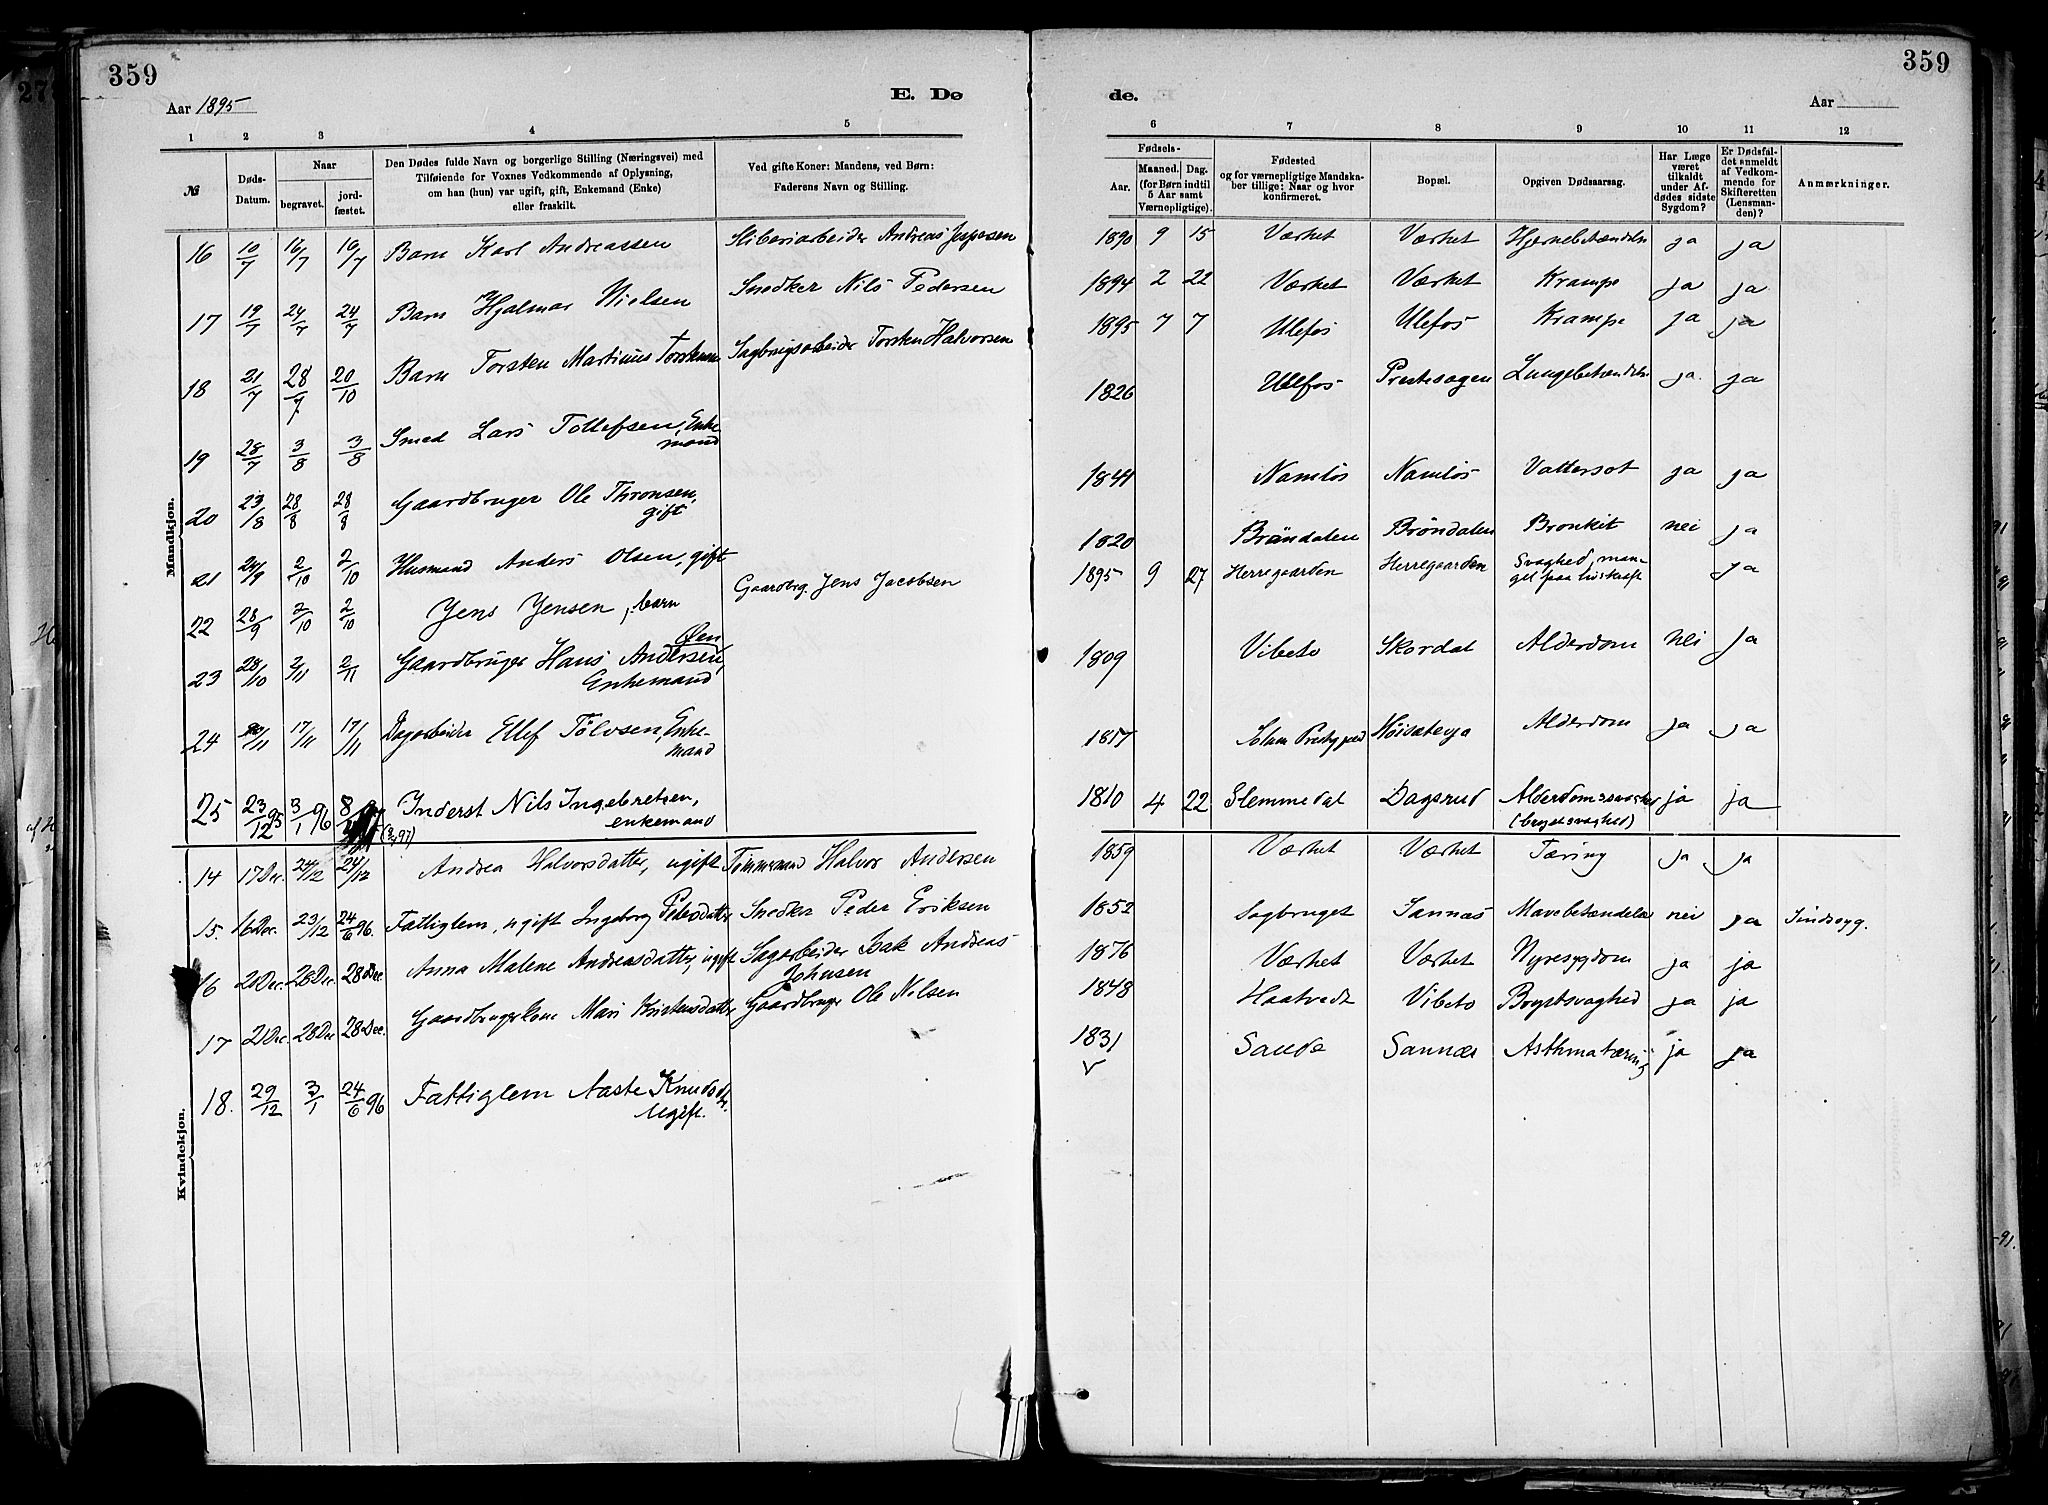 359
359
Aar 1895
E. Dø
de.
Aar
1 2 3 4 5 6 7 8 9 10 11 12
№
Døds-
Datum.
Naar
begravet.
jord-
fæstet.
Den Dødes fulde Navn og borgerlige Stilling (Næringsvei) med
Tilføiende for Voxnes Vedkommende af Oplysning,
om han (hun) var ugift, gift, Enkemand (Enke)
eller fraskilt.
Ved gifte Koner: Mandens, ved Børn:
Faderens Navn og Stilling.
Fødsels-
Aar.
Maaned. Dag.
(for Børn indtil
5 Aar samt
Værnepligtige).
Fødested
og for værnepligtige Mandska-
ber tillige: Naar og hvor
konfirmeret.
Bopæl.
Opgiven Dødsaarsag.
Har Læge
været
tilkaldt
under Af-
dødes sidste
Sygdom?
Er Dødsfal-
det anmeldt
af Vedkom-
mende for
Skifteretten
(Lensman-
den)?
Anmærkninger.
Mandkjøn.
16 10/7 16/7 16/7 Barn Karl Andreassen Sliberiarbeider Andreas Jespersen 1890 9 15 Værket Værket Hjernebetændelse ja ja
17 19/7 24/7 24/7 Barn Hjalmar Nielsen Snedker Nils Pedersen 1894 2 22 Værket Værket Krampe ja ja
18 21/7 28/7 20/10 Barn Torsten Martinius Torstensen Sagbrugsarbeider Torsten Halvorsen 1895 7 7 Ulefos Ulefos Krampe ja ja
19 28/7 3/8 3/8 Smed Lars Tollefsen, Enke-
mand 1826 Ulefos Prestevogen Lungebetændelse ja. ja
20 23/8 28/8 28/8 Gaardbruger Ole Thronsen,
gift 1844 Namløs Namløs Vattersot ja ja
21 24/9 2/10 2/10 Husmand Anders Olsen, gift 1820 Bröndalen Bröndalen Bronkit nei ja
22 28/9 2/10 2/10 Jens Jensen, barn Gaardbrg. Jens Jacobsen 1895 9 27 Herregaarden Herregaarden Svaghed, man-
gel paa livskraft ja
23 28/10 2/11 2/11 Gaardbruger Hans Andersen Øen
Enkemand 1809 Vibeto Skordal Alderdom nei ja
24 17/11 17/11 Dagarbeider Ellef Tölvsen, Enke-
mand 1817 Solum Prestegjeld Höisæterja Alderdom ja ja
25 23/12 95 3/1 96 Inderst Nils Ingebretsen,
enkemand 1810 4 22 Slemmedal Dagsrud Alderdomssvaghed
(brystsvaghed) ja ja
Kvindekjøn.
14 17 Dec. 24/12 24/12 Andrea Halvorsdatter, ugift Tømmermand Halvor Andersen 1859 Værket Værket Tæring ja ja
15. 16 Dec. 23/12 24/6 96. Fattiglem, ugift Ingeborg Pedersdatter Snedker Peder Eriksen 1852 Sagbruget Sannæs Mavebetændelse nei ja Sindssyg.
16 20 Dec. 28 Dec 28 Dec Anna Malene Andreasdatter, ugift Sagarbeider Isak Andreas
Johnsen 1876 Værket Værket Nyresygdom ja ja
17 21 Dec. 28 Dec 28 Dec. Gaardbrugerkone Mari Kristensdatter Gaardbruger Ole Nilsen 1848 Haatvedt Vibeto Brystsvaghed ja ja
18. 29/12 3/1 24/6 96 Fattiglem Aaste Knudsdtr.
Ugift. 1831 Saude Sannæs Asthmatæring ja ja